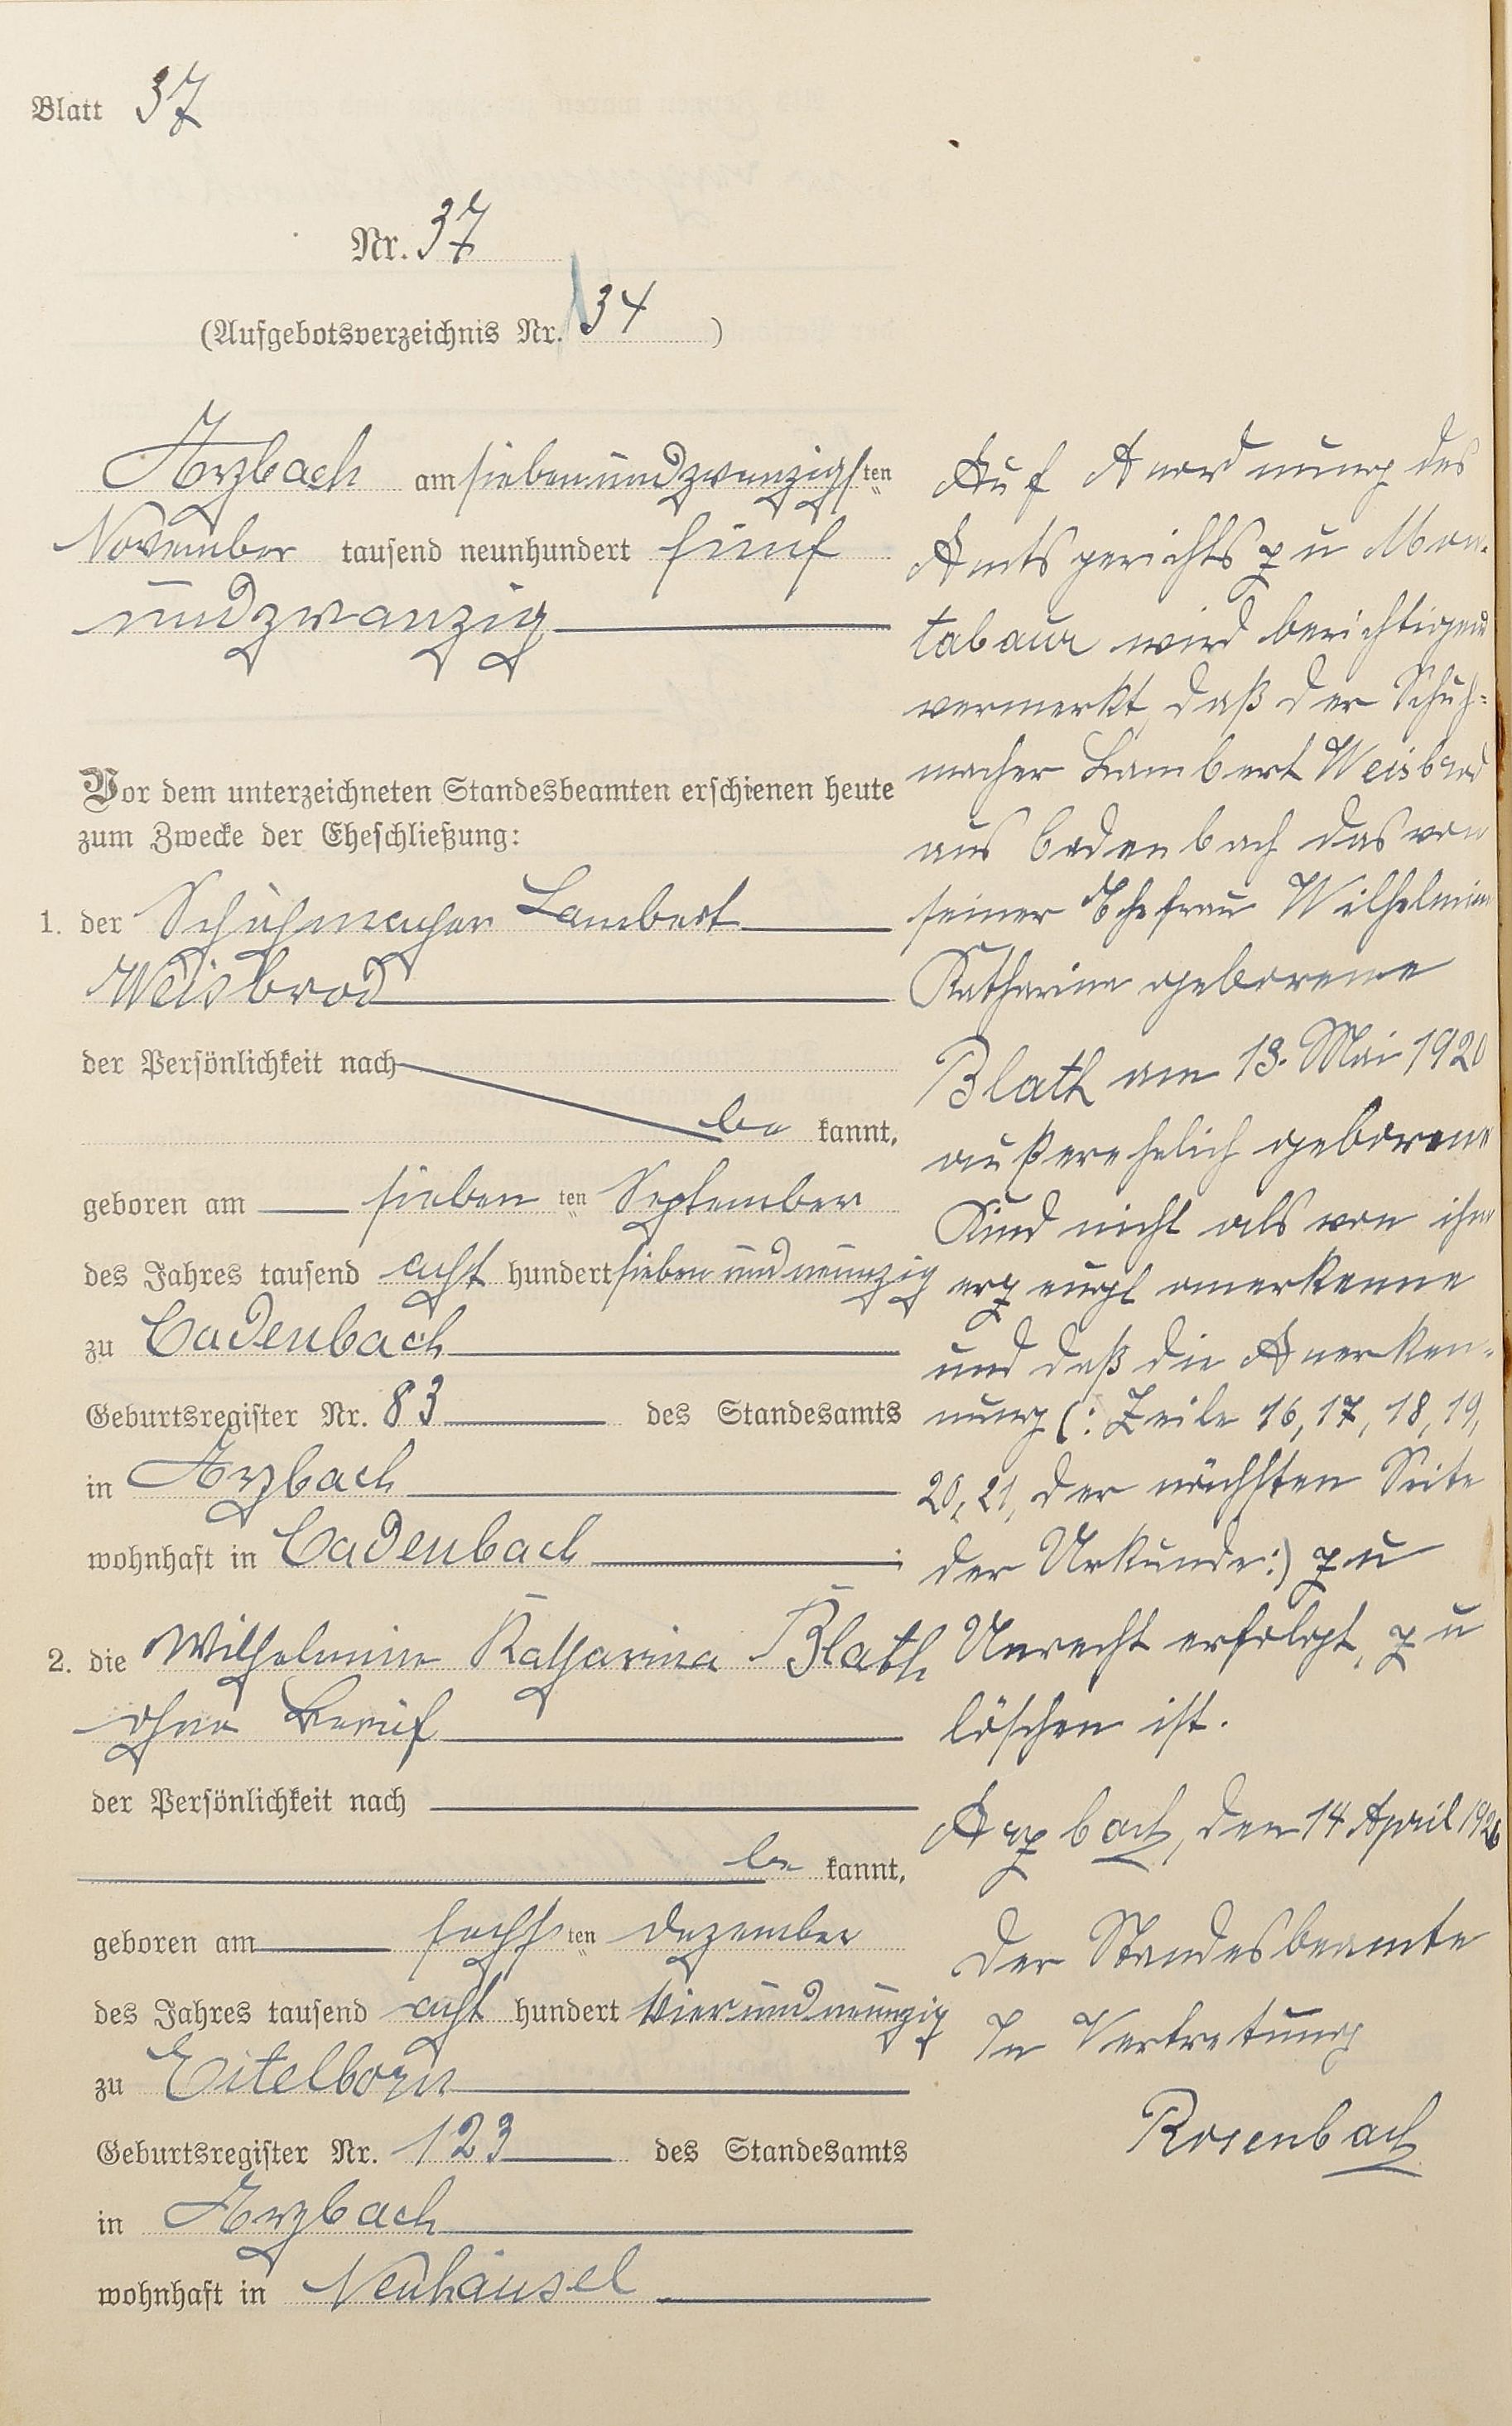 Blatt 37
Nr. 37
(Aufgebotsverzeichnis Nr. 34)
Arzbach am siebenundzwanzigsten
November tausend neunhundert fünf
undzwanzig
Vor dem unterzeichneten Standesbeamten erschienen heute
zum Zwecke der Eheschließung:
1. der Schuhmacher Lambert
Weisbrod
der Persönlichkeit nach
be kannt,
geboren am sieben ten September
des Jahres tausend acht hundert siebenundneunzig
zu Cadenbach
Geburtsregister Nr. 83 des Standesamts
in Arzbach
wohnhaft in Cadenbach
2. die Wilhelmine Katharina Blath
ohne Beruf
der Persönlichkeit nach
be kannt,
geboren am sechsten Dezember
des Jahres tausend acht hundert vierundneunzig
zu Eitelborn
Geburtsregister Nr. 123 des Standesamts
in Arzbach
wohnhaft in Neuhäusel
Auf Anordnung des
Amtsgerichts zu Mon-
tabaur wird berichtigend
vermerkt, daß der Schuh=
macher Lambert Weisbrod
aus Cadenbach das von
seiner Ehefrau Wilhelmine
Katharina geborene
Blath am 13. Mai 1920
außerehelich geborene
Kind nicht als von ihm
erzeugt anerkenne
und daß die Anerken-
nung (: Zeile 16, 17, 18, 19,
20, 21, der nächsten Seite
der Urkunde:) zu
Unrecht erfolgt, zu
löschen ist.
Arzbach, den 14 April 1926
Der Standesbeamte
In Vertretung
Rosenbach